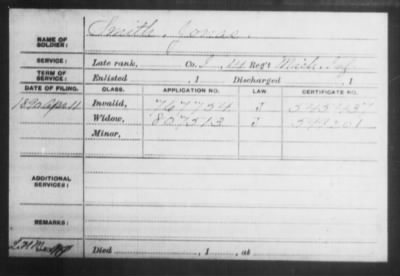 NAME OF SOLDIER: Smith, Jonas
SERVICE: Late rank, Co. I, 14 Reg't Mich. Inf.
TERM OF SERVICE: Enlisted , 1 Discharged , 1
DATE OF FILING. CLASS. APPLICATION NO. LAW. CERTIFICATE NO.
1890 Apr. 11 Invalid, 767754 J 545437
Widow, 807513 J 544361
Minor,
ADDITIONAL SERVICES:
REMARKS:
Died , 1 , at